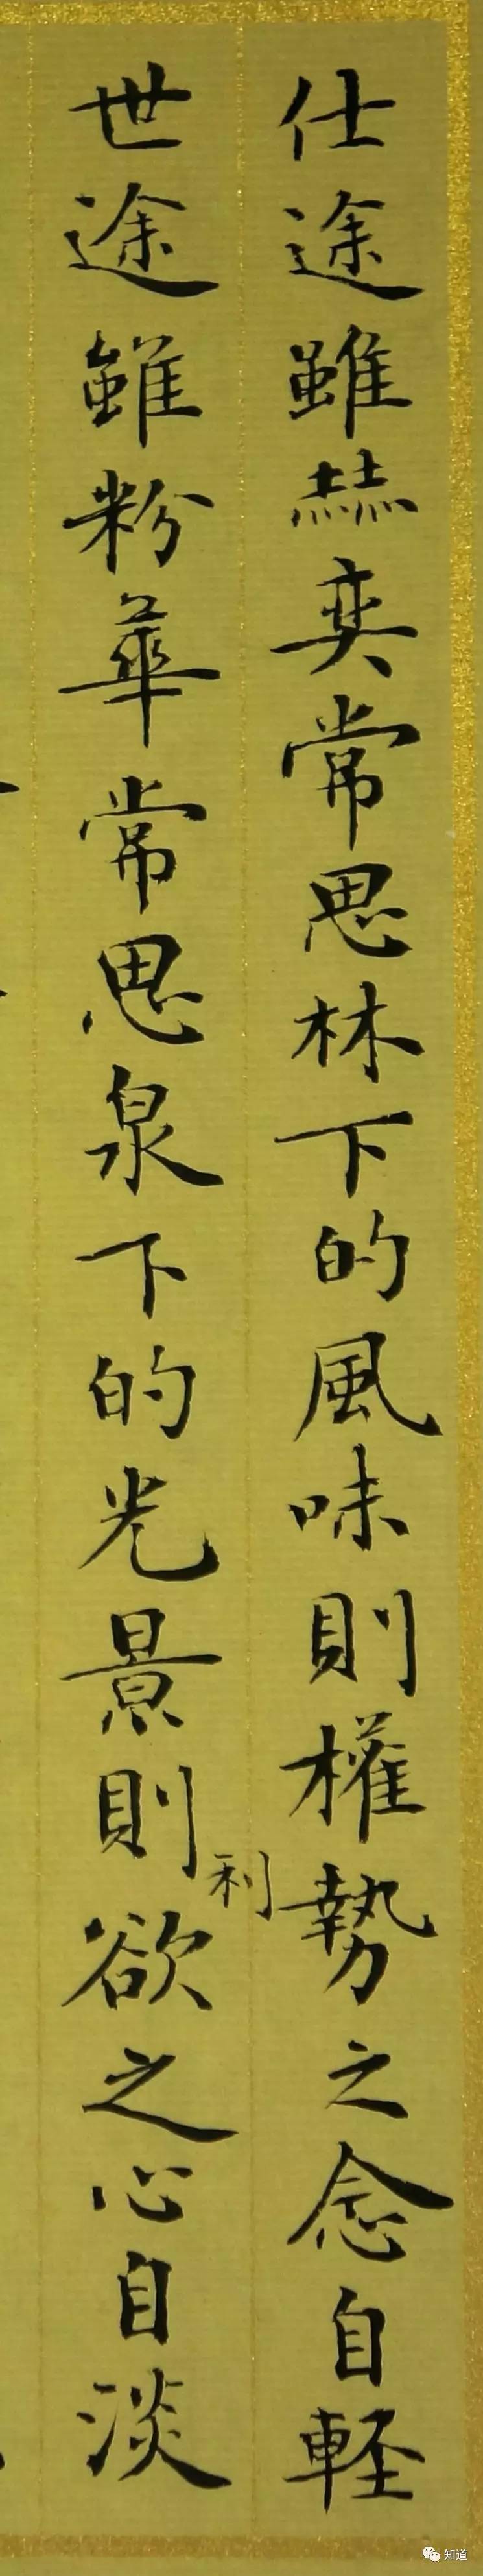 仕途雖赫奕常思林下的風味則權勢之念自軽
世途雖粉華常思泉下的光景則利欲之心自淡
知道